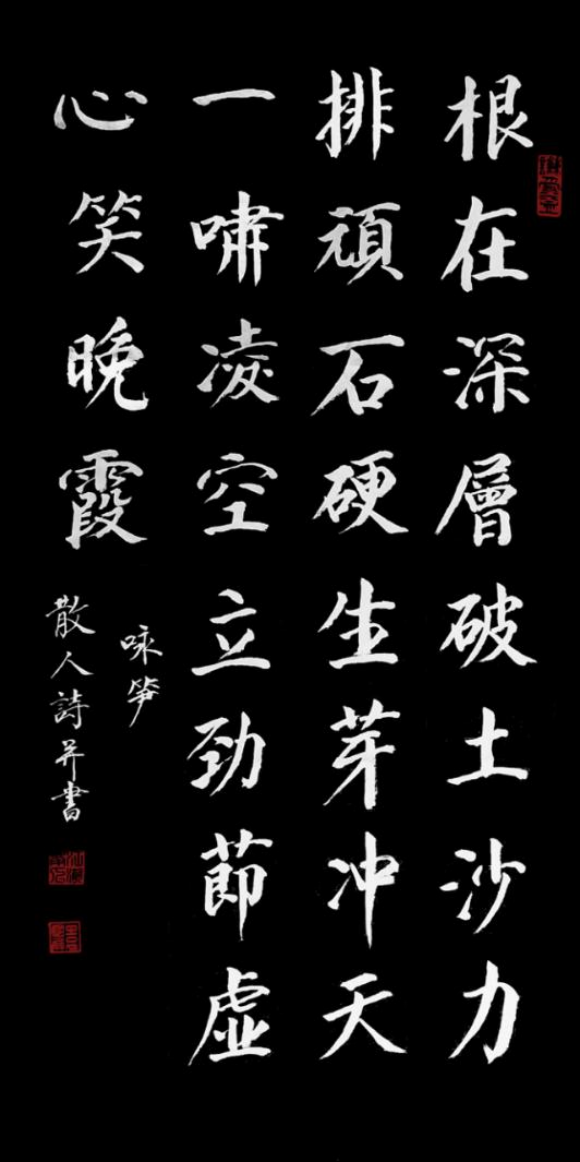 根在深層破土沙力
排頑石硬生芽冲天
一嘯凌空立劲節虚
心笑晚霞
咏笋
散人詩并書